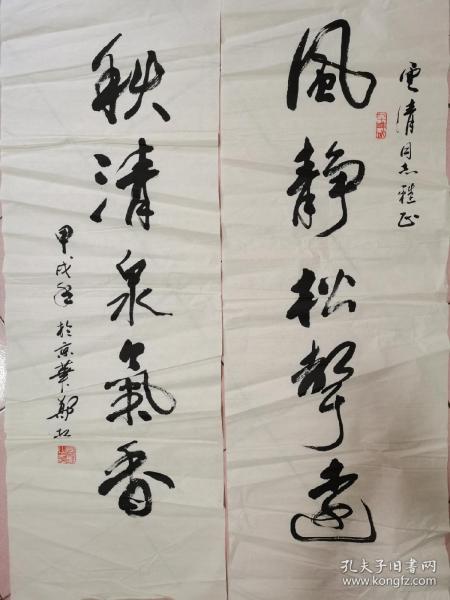 雲清同志雅正
風静松聲遠
秋清泉氣香
甲戌年於京華鄭松
孔夫子旧书网
www.kongfz.com